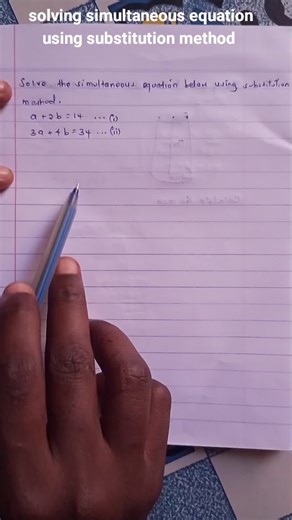 solving simultaneous equation
using substitution method
Solve the simultaneous equation below using substitution
method.
a + 2b = 14 ... (i)
3a + 4b = 34 ... (ii)